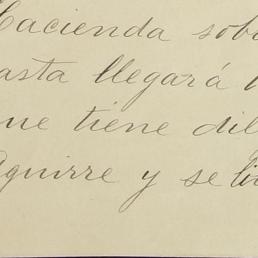 Hacienda sob
asta llegará
que tiene dil
Aguirre y se